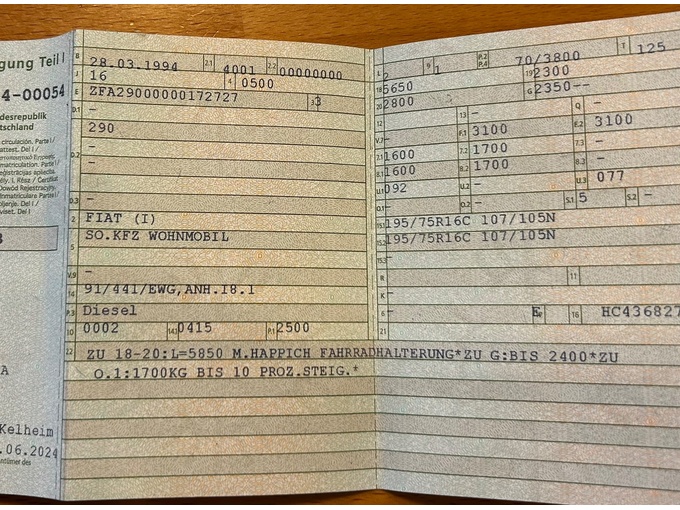 gung Teil I
4-00054
desrepublik
tschland
B 28.03.1994 2.1 4001 2.2 00000000
J 16 4 0500
E ZFA29000000172727 3 3
D.1 -
290
D.2 -
-
D.3 -
2 FIAT (I)
5 SO.KFZ WOHNMOBIL
V.9 -
14 91/441/EWG,ANH.I8.1
P.3 Diesel
10 0002 14.1 0415 P.1 2500
22 ZU 18-20:L=5850 M.HAPPICH FAHRRADHALTERUNG*ZU G:BIS 2400*ZU
O.1:1700KG BIS 10 PROZ.STEIG.*
L 2 9 1 P.2 P.4 70/3800 T 125
18 5650 19 2300
20 2800 G 2350--
12 - 13 - Q -
V.7 - F.1 3100 F.2 3100
7.1 1600 7.2 1700 7.3 -
8.1 1600 8.2 1700 8.3 -
U.1 092 U.2 - U.3 077
O.1 - O.2 - S.1 5 S.2 -
15.1 195/75R16C 107/105N
15.2 195/75R16C 107/105N
15.3 -
R - 11 -
K -
6 - 16 HC436827
21 -
A
Kelheim
.06.2024